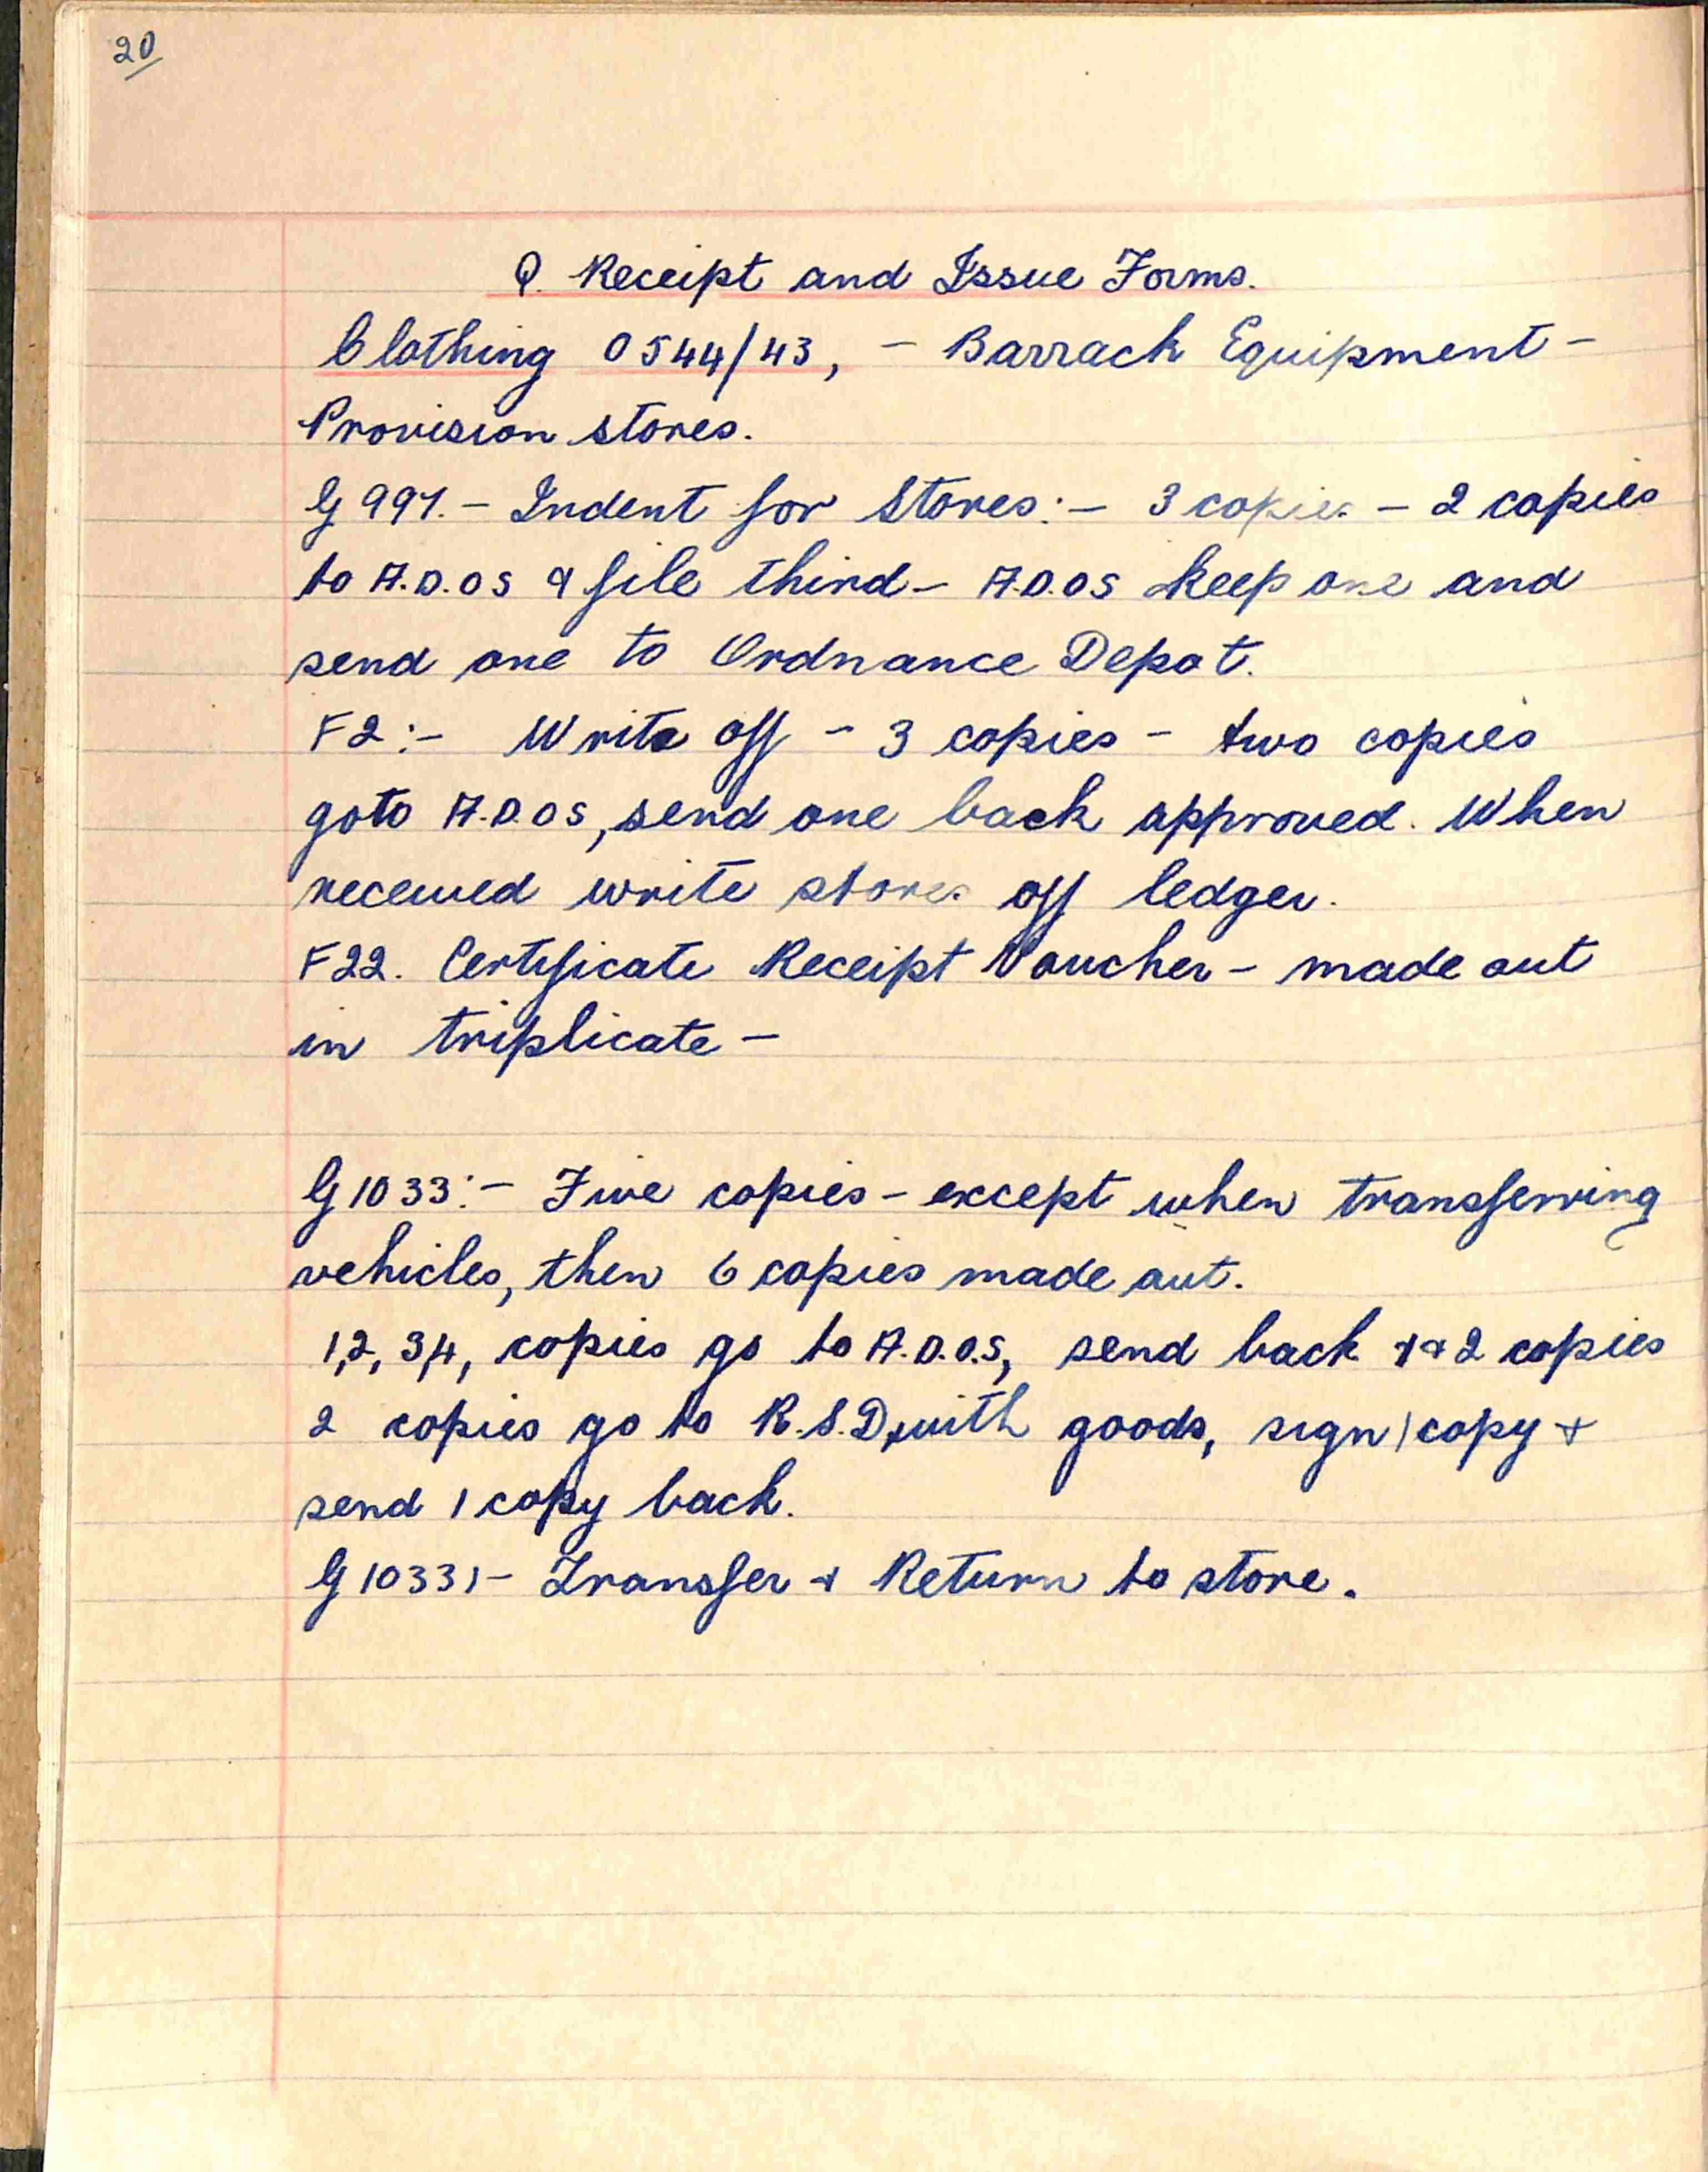 20
Q. Receipt and Issue Forms.
Clothing 0544/43, - Barrack Equipment -
Provision stores.
G 997. - Indent for Stores: - 3 copies - 2 copies
to A.D.OS & file third - A.D.OS keep one and
send one to Ordnance Depot.
F2:- Write off - 3 copies - two copies
go to A.D.OS, send one back approved. When
received write stores off ledger.
F22. Certificate Receipt Voucher - made out
in triplicate -
G 1033:- Five copies - except when transferring
vehicles, then 6 copies made out.
1,2,3,4, copies go to A.D.O.S, send back & 2 copies
2 copies go to R.S.D, with goods, sign 1 copy &
send 1 copy back.
G 1033:- Transfer & Return to store.